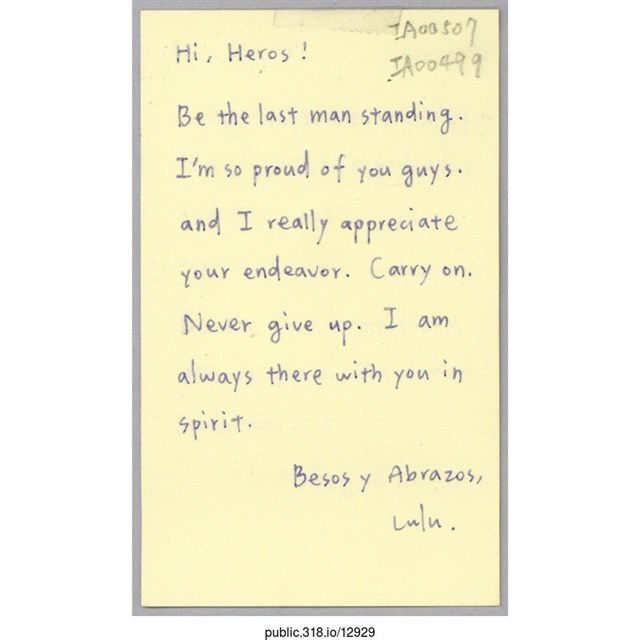 IA00507
IA00499
Hi, Heros!
Be the last man standing.
I'm so proud of you guys.
and I really appreciate
your endeavor. Carry on.
Never give up. I am
always there with you in
spirit.
Besos y Abrazos,
Lulu.
public.318.io/12929